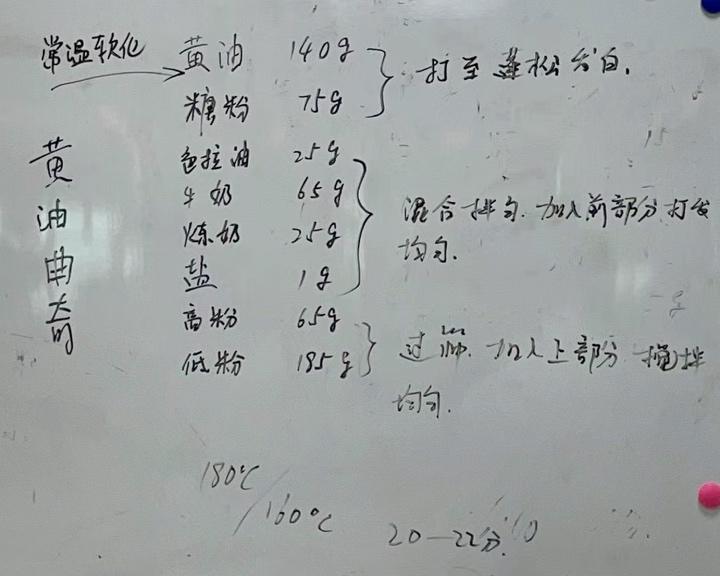 常温软化 黄油 140g 打至蓬松发白.
糖粉 75g
黄油曲奇
色拉油 25g
牛奶 65g 混合拌匀. 加入前部分打发
炼奶 25g 均匀.
盐 1g
高粉 65g 过筛. 加入上部分 搅拌
低粉 185g 均匀.
180℃
/160℃ 20-22分.